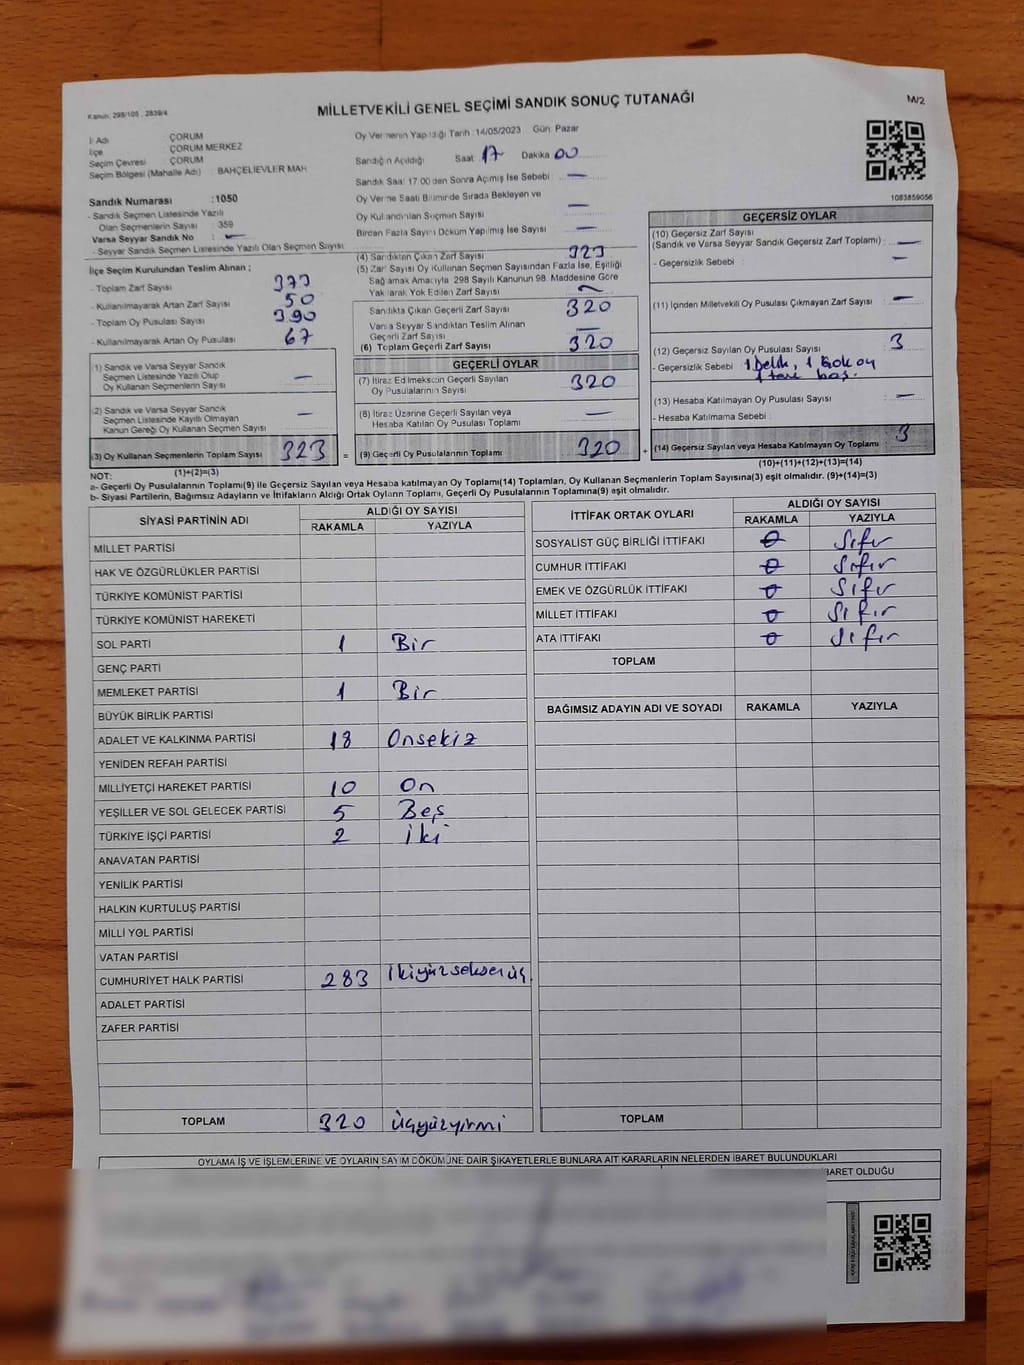 Kanun, 298/105 , 2839/4
MİLLETVEKİLİ GENEL SEÇİMİ SANDIK SONUÇ TUTANAĞI
M/2
İl Adı : ÇORUM
İlçe : ÇORUM MERKEZ
Seçim Çevresi : ÇORUM
Seçim Bölgesi (Mahalle Adı) : BAHÇELİEVLER MAH
Sandık Numarası :1050
- Sandık Seçmen Listesinde Yazılı
Olan Seçmenlerin Sayısı : 359
Varsa Seyyar Sandık No : —
- Seyyar Sandık Seçmen Listesinde Yazılı Olan Seçmen Sayısı:
Oy Vermenin Yapıldığı Tarih :14/05/2023 Gün: Pazar
Sandığın Açıldığı Saat 17 Dakika 00
Sandık Saat 17.00'den Sonra Açılmış İse Sebebi : —
Oy Verme Saati Bitiminde Sırada Bekleyen ve
Oy Kullandırılan Seçmen Sayısı —
Birden Fazla Sayım Döküm Yapılmış İse Sayısı : —
1083859056
İlçe Seçim Kurulundan Teslim Alınan ;
- Toplam Zarf Sayısı 373
- Kullanılmayarak Artan Zarf Sayısı 50
- Toplam Oy Pusulası Sayısı 390
- Kullanılmayarak Artan Oy Pusulası 67
(1) Sandık ve Varsa Seyyar Sandık
Seçmen Listesinde Yazılı Olup
Oy Kullanan Seçmenlerin Sayısı —
(2) Sandık ve Varsa Seyyar Sandık
Seçmen Listesinde Kayıtlı Olmayan
Kanun Gereği Oy Kullanan Seçmen Sayısı —
(3) Oy Kullanan Seçmenlerin Toplam Sayısı 323
(4) Sandıktan Çıkan Zarf Sayısı 323
(5) Zarf Sayısı Oy Kullanan Seçmen Sayısından Fazla İse, Eşitliği
Sağlamak Amacıyla 298 Sayılı Kanunun 98. Maddesine Göre
Yakılarak Yok Edilen Zarf Sayısı —
Sandıkta Çıkan Geçerli Zarf Sayısı 320
Varsa Seyyar Sandıktan Teslim Alınan
Geçerli Zarf Sayısı —
(6) Toplam Geçerli Zarf Sayısı 320
GEÇERLİ OYLAR
(7) İtiraz Edilmeksizin Geçerli Sayılan
Oy Pusulalarının Sayısı 320
(8) İtiraz Üzerine Geçerli Sayılan veya
Hesaba Katılan Oy Pusulası Toplamı —
= (9) Geçerli Oy Pusulalarının Toplamı 320
GEÇERSİZ OYLAR
(10) Geçersiz Zarf Sayısı
(Sandık ve Varsa Seyyar Sandık Geçersiz Zarf Toplamı) : —
- Geçersizlik Sebebi : —
(11) İçinden Milletvekili Oy Pusulası Çıkmayan Zarf Sayısı : —
(12) Geçersiz Sayılan Oy Pusulası Sayısı : 3
- Geçersizlik Sebebi : 1 Delik, 1 Çok oy
1 tane boş.
(13) Hesaba Katılmayan Oy Pusulası Sayısı : —
- Hesaba Katılmama Sebebi :
+ (14) Geçersiz Sayılan veya Hesaba Katılmayan Oy Toplamı 3
NOT: (1)+(2)=(3)
(10)+(11)+(12)+(13)=(14)
a- Geçerli Oy Pusulalarının Toplamı(9) ile Geçersiz Sayılan veya Hesaba katılmayan Oy Toplamı(14) Toplamları, Oy Kullanan Seçmenlerin Toplam Sayısına(3) eşit olmalıdır. (9)+(14)=(3)
b- Siyasi Partilerin, Bağımsız Adayların ve İttifakların Aldığı Ortak Oyların Toplamı, Geçerli Oy Pusulalarının Toplamına(9) eşit olmalıdır.
SİYASİ PARTİNİN ADI ALDIĞI OY SAYISI
RAKAMLA YAZIYLA
MİLLET PARTİSİ
HAK VE ÖZGÜRLÜKLER PARTİSİ
TÜRKİYE KOMÜNİST PARTİSİ
TÜRKİYE KOMÜNİST HAREKETİ
SOL PARTİ 1 Bir
GENÇ PARTİ
MEMLEKET PARTİSİ 1 Bir
BÜYÜK BİRLİK PARTİSİ
ADALET VE KALKINMA PARTİSİ 18 Onsekiz
YENİDEN REFAH PARTİSİ
MİLLİYETÇİ HAREKET PARTİSİ 10 On
YEŞİLLER VE SOL GELECEK PARTİSİ 5 Beş
TÜRKİYE İŞÇİ PARTİSİ 2 İki
ANAVATAN PARTİSİ
YENİLİK PARTİSİ
HALKIN KURTULUŞ PARTİSİ
MİLLİ YOL PARTİSİ
VATAN PARTİSİ
CUMHURİYET HALK PARTİSİ 283 İkiyüzseksenüç
ADALET PARTİSİ
ZAFER PARTİSİ
TOPLAM 320 Üçyüzyirmi
İTTİFAK ORTAK OYLARI ALDIĞI OY SAYISI
RAKAMLA YAZIYLA
SOSYALİST GÜÇ BİRLİĞİ İTTİFAKI 0 Sıfır
CUMHUR İTTİFAKI 0 Sıfır
EMEK VE ÖZGÜRLÜK İTTİFAKI 0 Sıfır
MİLLET İTTİFAKI 0 Sıfır
ATA İTTİFAKI 0 Sıfır
TOPLAM
BAĞIMSIZ ADAYIN ADI VE SOYADI RAKAMLA YAZIYLA
TOPLAM
OYLAMA İŞ VE İŞLEMLERİNE VE OYLARIN SAYIM DÖKÜMÜNE DAİR ŞİKAYETLERLE BUNLARA AİT KARARLARIN NELERDEN İBARET BULUNDUKLARI
İBARET OLDUĞU